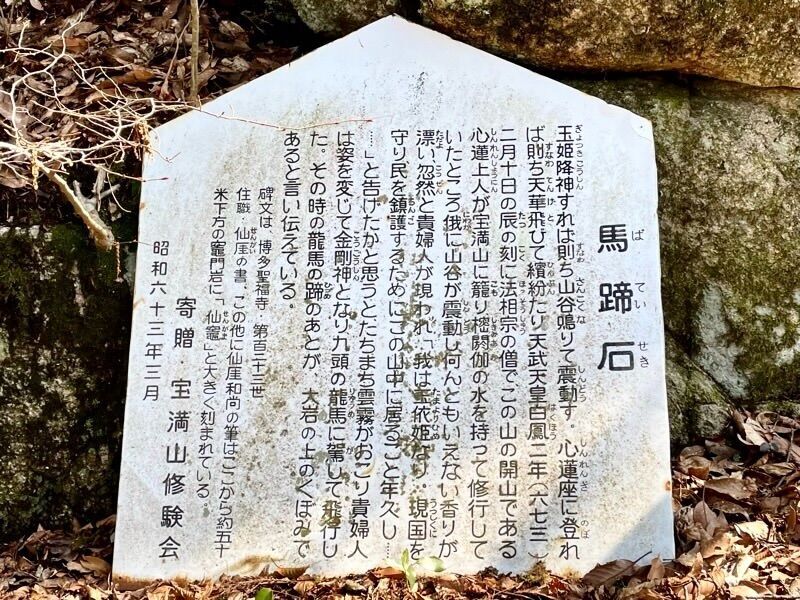 馬蹄石
ばていせき
玉姫降神すれば則ち山谷鳴りて震動す。心蓮座に登れ
ば則ち天華飛びて繽紛たり、天武天皇白鳳二年(六七三)
二月十日の辰の刻に法相宗の僧で、この山の開山である
心蓮上人が宝満山に籠り樒閼伽の水を持って修行して
いたところ俄に山谷が震動し何んともいえない香りが
漂い、忽然と貴婦人が現われ、「我は玉依姫なり。現国を
守り民を鎮護するためにこの山中に居ること年久し……
……」と告げたかと思うと、たちまち雲霧がおこり貴婦人
は姿を変じて金剛神となり九頭の龍馬に駕して飛行し
た。その時の龍馬の蹄のあとが、大岩の上のくぼみで
あると言い伝えている。
碑文は、博多聖福寺・第百二十三世
住職・仙厓の書、この他に仙厓和尚の筆はここから約五十
米下方の竈門岩に「仙竈」と大きく刻まれている。
昭和六十三年三月
寄贈・宝満山修験会